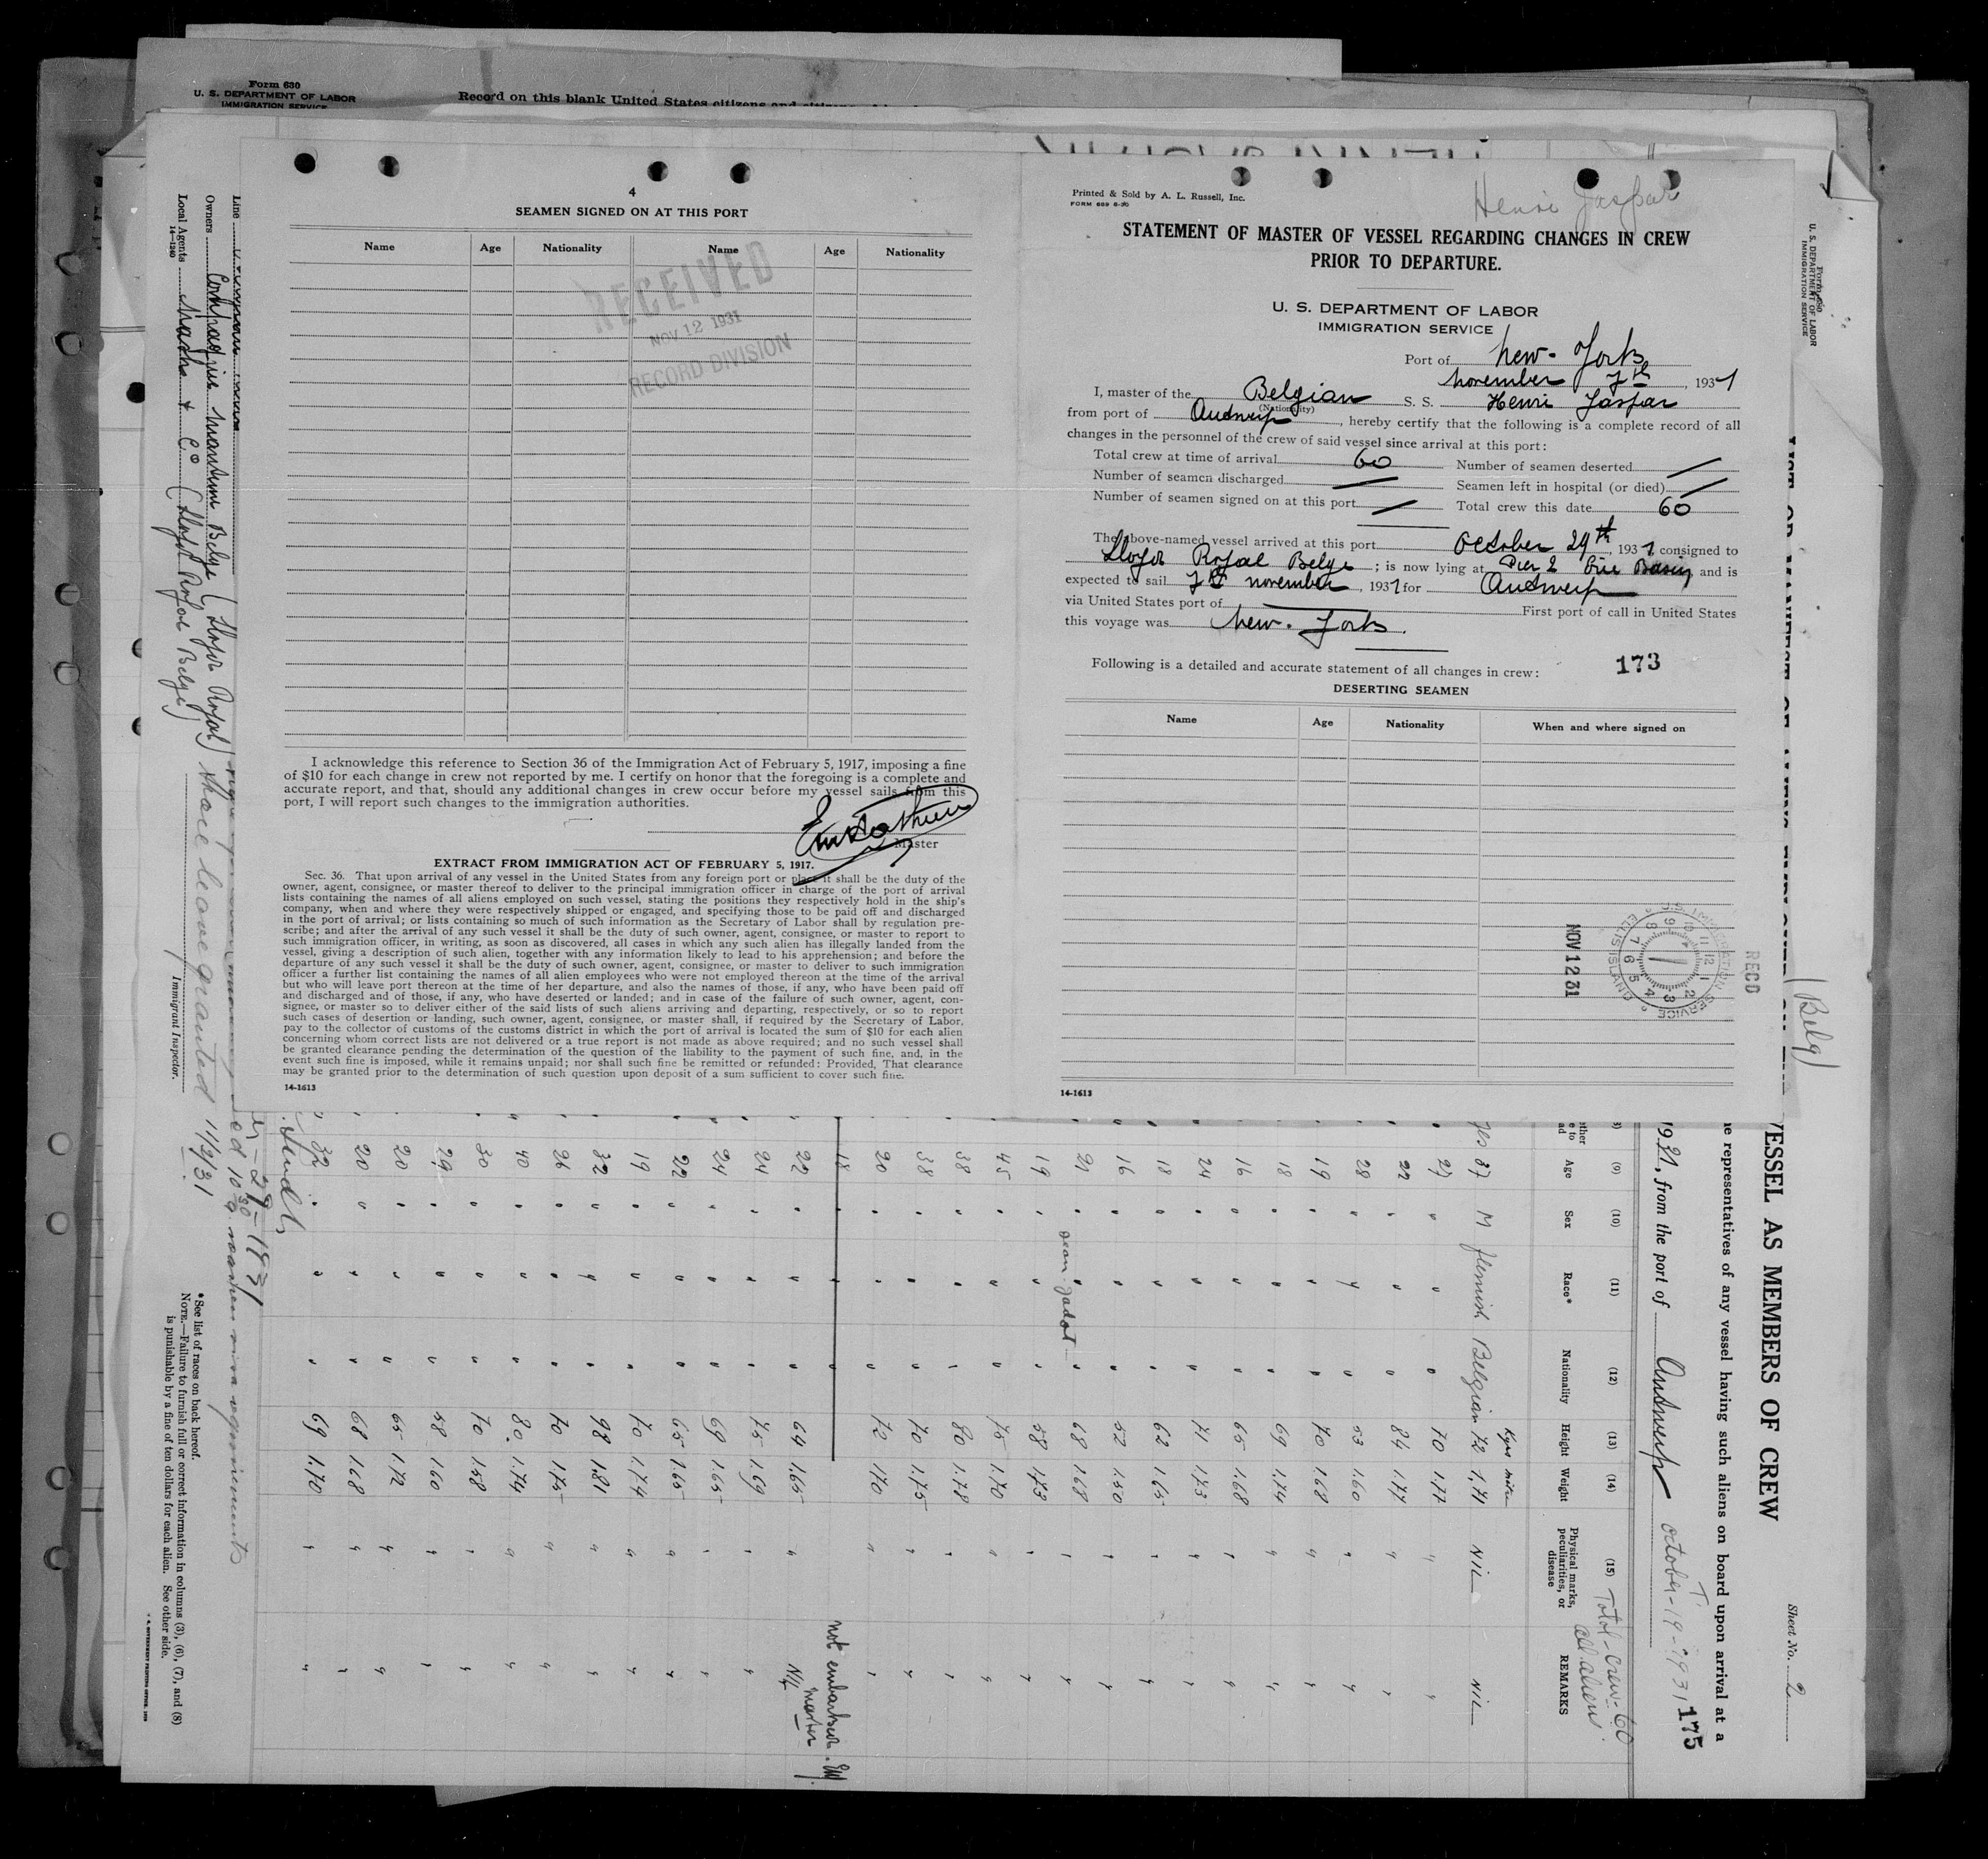 Form 630
U. S. DEPARTMENT OF LABOR
IMMIGRATION SERVICE
Record on this blank United States citizens and
4
SEAMEN SIGNED ON AT THIS PORT
Name Age Nationality Name Age Nationality
RECEIVED
NOV 12 1931
RECORD DIVISION
I acknowledge this reference to Section 36 of the Immigration Act of February 5, 1917, imposing a fine
of $10 for each change in crew not reported by me. I certify on honor that the foregoing is a complete and
accurate report, and that, should any additional changes in crew occur before my vessel sails from this
port, I will report such changes to the immigration authorities.
Master
EXTRACT FROM IMMIGRATION ACT OF FEBRUARY 5, 1917.
Sec. 36. That upon arrival of any vessel in the United States from any foreign port or place it shall be the duty of the
owner, agent, consignee, or master thereof to deliver to the principal immigration officer in charge of the port of arrival
lists containing the names of all aliens employed on such vessel, stating the positions they respectively hold in the ship's
company, when and where they were respectively shipped or engaged, and specifying those to be paid off and discharged
in the port of arrival; or lists containing so much of such information as the Secretary of Labor shall by regulation pre-
scribe; and after the arrival of any such vessel it shall be the duty of such owner, agent, consignee, or master to report to
such immigration officer, in writing, as soon as discovered, all cases in which any such alien has illegally landed from the
vessel, giving a description of such alien, together with any information likely to lead to his apprehension; and before the
departure of any such vessel it shall be the duty of such owner, agent, consignee, or master to deliver to such immigration
officer a further list containing the names of all alien employees who were not employed thereon at the time of the arrival
but who will leave port thereon at the time of her departure, and also the names of those, if any, who have been paid off
and discharged and of those, if any, who have deserted or landed; and in case of the failure of such owner, agent, con-
signee, or master so to deliver either of the said lists of such aliens arriving and departing, respectively, or so to report
such cases of desertion or landing, such owner, agent, consignee, or master shall, if required by the Secretary of Labor,
pay to the collector of customs of the customs district in which the port of arrival is located the sum of $10 for each alien
concerning whom correct lists are not delivered or a true report is not made as above required; and no such vessel shall
be granted clearance pending the determination of the question of the liability to the payment of such fine, and, in the
event such fine is imposed, while it remains unpaid; nor shall such fine be remitted or refunded: Provided, That clearance
may be granted prior to the determination of such question upon deposit of a sum sufficient to cover such fine.
14-1613
Printed & Sold by A. L. Russell, Inc.
FORM 689 6-30
Henri Jaspar
STATEMENT OF MASTER OF VESSEL REGARDING CHANGES IN CREW
PRIOR TO DEPARTURE.
U. S. DEPARTMENT OF LABOR
IMMIGRATION SERVICE
Port of New-York
November 7th, 1931
I, master of the Belgian S. S. Henri Jaspar
(Nationality)
from port of Antwerp, hereby certify that the following is a complete record of all
changes in the personnel of the crew of said vessel since arrival at this port:
Total crew at time of arrival 60 Number of seamen deserted /
Number of seamen discharged / Seamen left in hospital (or died) /
Number of seamen signed on at this port / Total crew this date 60
The above-named vessel arrived at this port October 29th, 1931, consigned to
Lloyd Royal Belge; is now lying at Pier 2 Erie Basin, and is
expected to sail 7th november, 1931 for Antwerp
via United States port of First port of call in United States
this voyage was New-York.
Following is a detailed and accurate statement of all changes in crew: 173
DESERTING SEAMEN
Name Age Nationality When and where signed on
RECD
NOV 12 31
IMMIGRATION SERVICE
ELLIS ISLAND
14-1613
Line
Owners Compagnie Maritime Belge (Lloyd Royal)
Local Agents & Co (Lloyd Royal Belge)
14-1240
Shore leave granted 11/2/31
Immigrant Inspector.
*See list of races on back hereof.
NOTE.—Failure to furnish full or correct information in columns (3), (6), (7), and (8)
is punishable by a fine of ten dollars for each alien. See other side.
Form 680
U. S. DEPARTMENT OF LABOR
IMMIGRATION SERVICE
(Belg)
VESSEL AS MEMBERS OF CREW
Sheet No. 2
representatives of any vessel having such aliens on board upon arrival at a
1931, from the port of Antwerp October-19-1931
175
Total-crew-60
all aliens
(9) (10) (11) (12) (13) (14) (15)
Age Sex Race* Nationality Height Weight Physical marks, peculiarities, or disease REMARKS
Kgrs metre
yes 37 M flemish Belgian 72 1.71 NIL NIL
27 70 1.77
22 84 1.77
28 53 1.60
19 70 1.68
18 69 1.74
16 65 1.68
24 71 1.73
18 62 1.65
16 52 1.50
21 68 1.68
19 58 1.73
45 75 1.70
38 80 1.78
38 70 1.75
20 72 170
18 not embarked. EM.
master
22 64 1.65 Nil
24 75 1.69
24 69 1.65
22 65 1.65
19 70 1.74
32 98 1.81
26 70 1.75
40 80 1.74
30 70 1.58
29 58 1.60
20 65 1.72
20 68 1.68
32 69 1.70